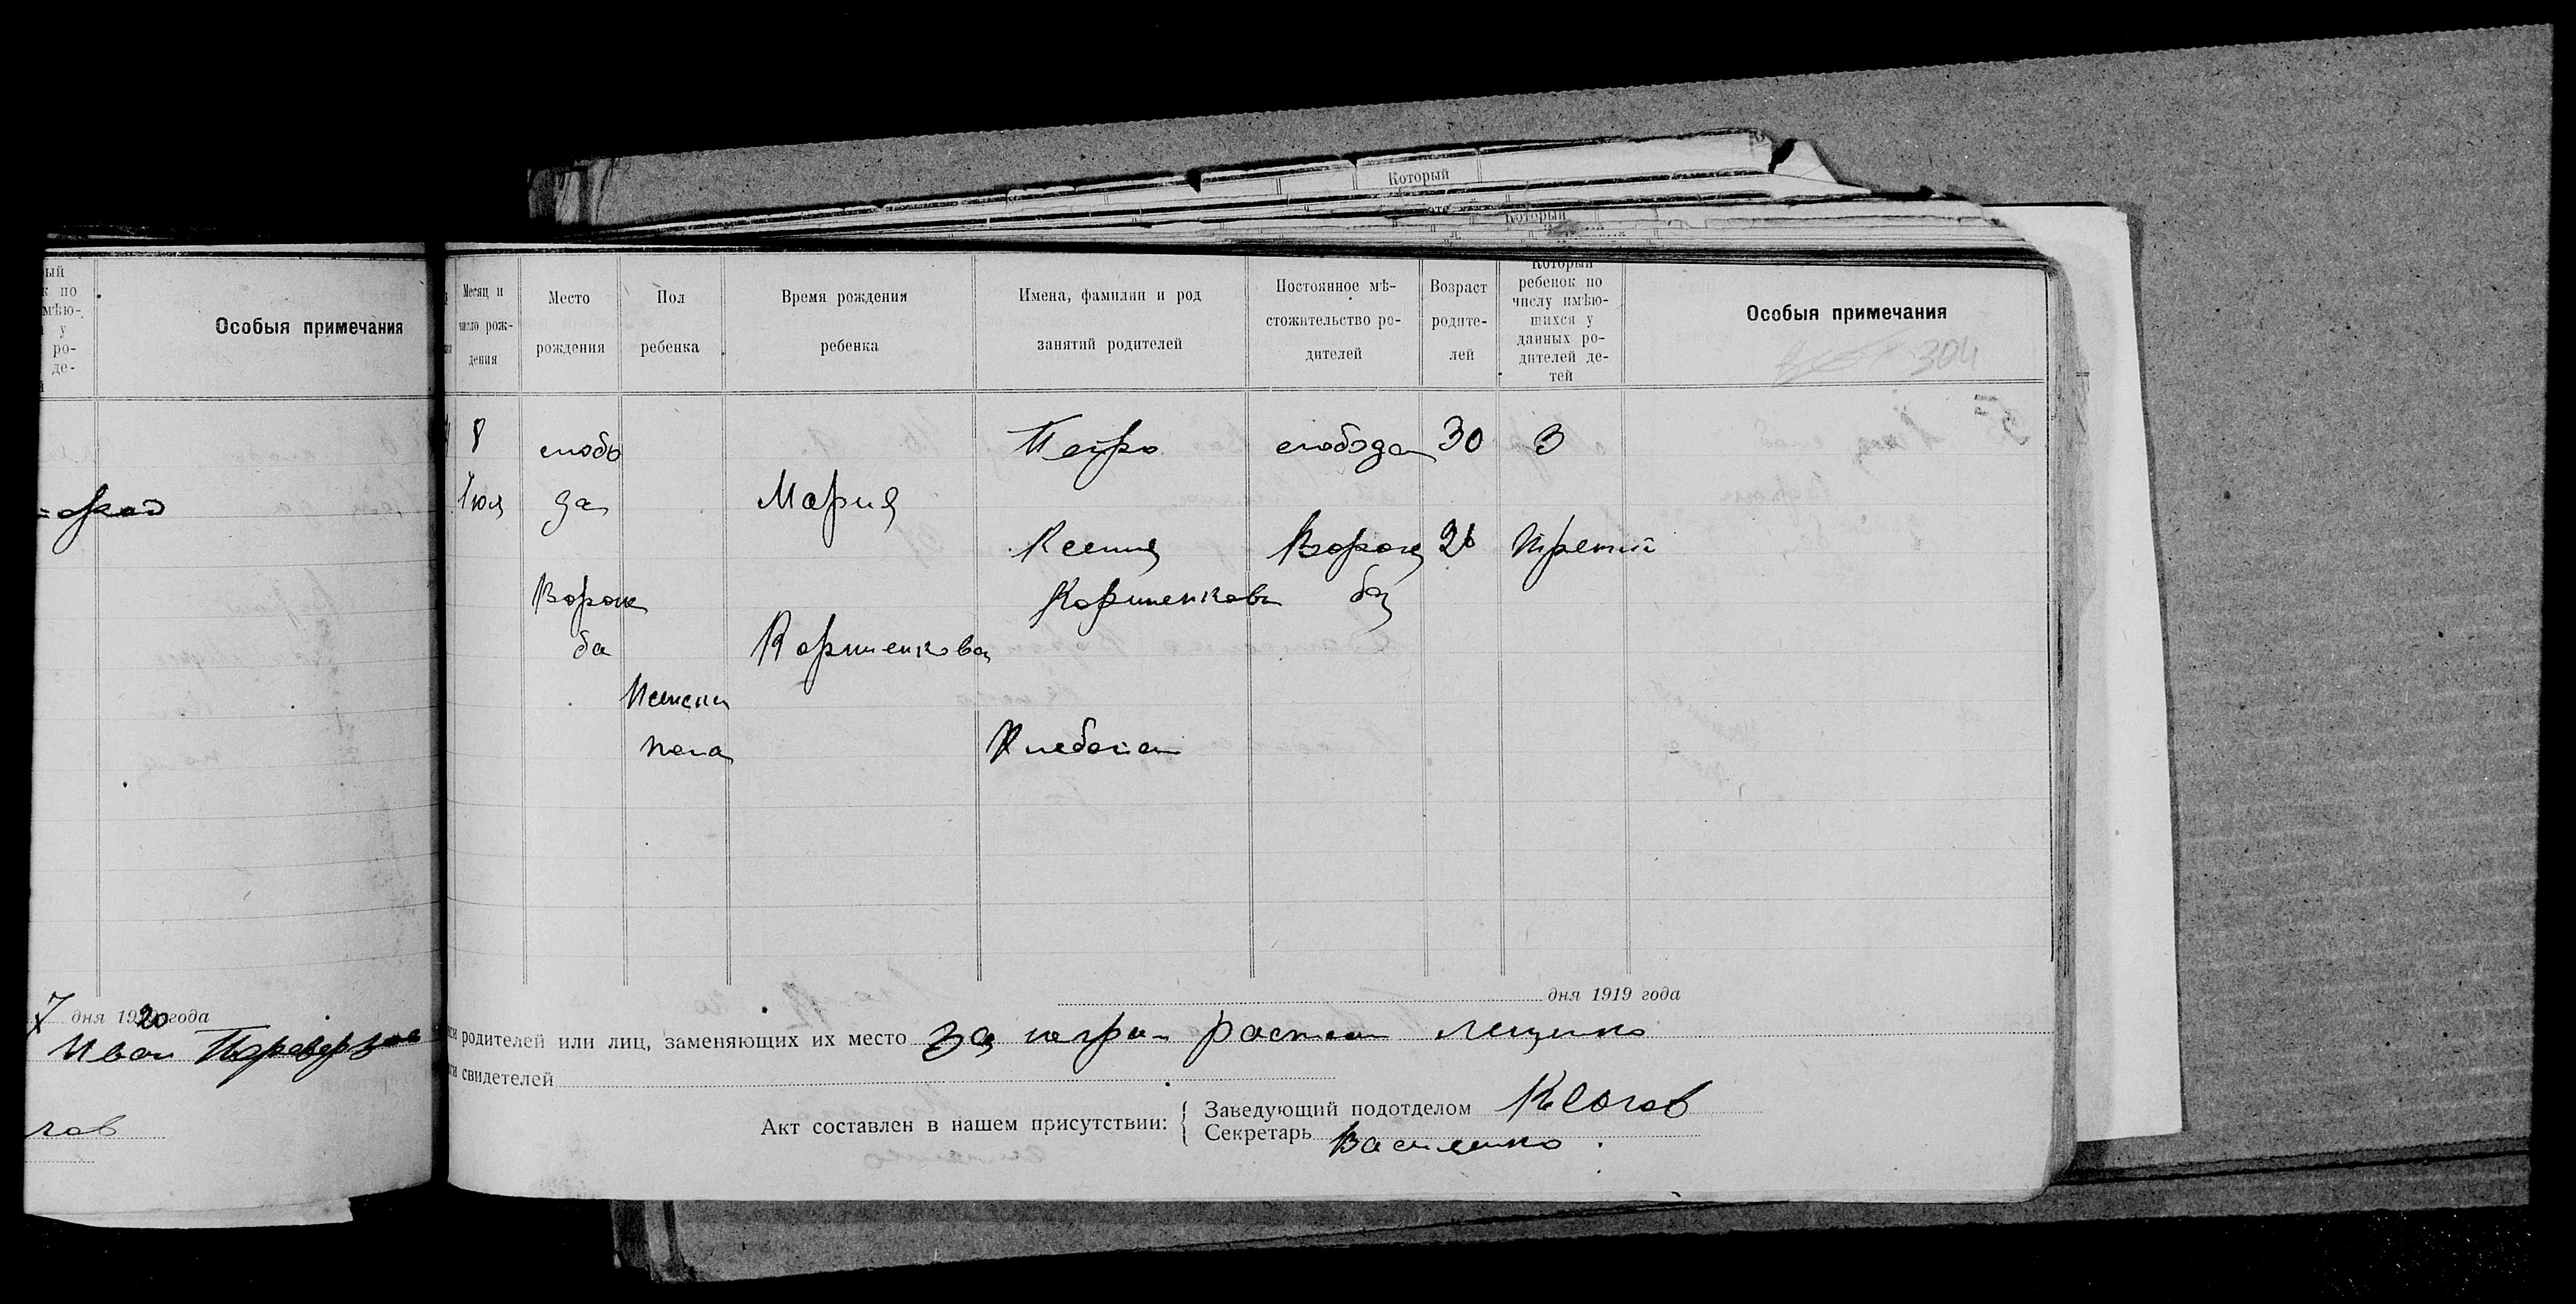 Который
Который
ый
к по
мѣю-
у
ро-
де-
Особыя примечания
7 дня 1920 года
Иван
Месяц и
число рож-
дения
Место
рождения
Пол
ребенка
Время рождения
ребенка
Имена, фамилии и род
занятий родителей
Постоянное мѣ-
стожительство ро-
дителей
Возраст
родите-
лей
Который
ребенок по
числу имѣю-
шихся у
данных ро-
дителей де-
тей
Особыя примечания
304
8
Июля
слобо
да
Ворож
ба
Женски
пола
Мария
Коршенкова
Петро
Ксения
Коршенкови
Хлебопаш
слобода
Ворож
ба
30
26
3
третий
дня 1919 года
родителей или лиц, заменяющих их место за негра- Лещенко
свидетелей
Акт составлен в нашем присутствии:
Заведующий подотделом
Секретарь Василенко